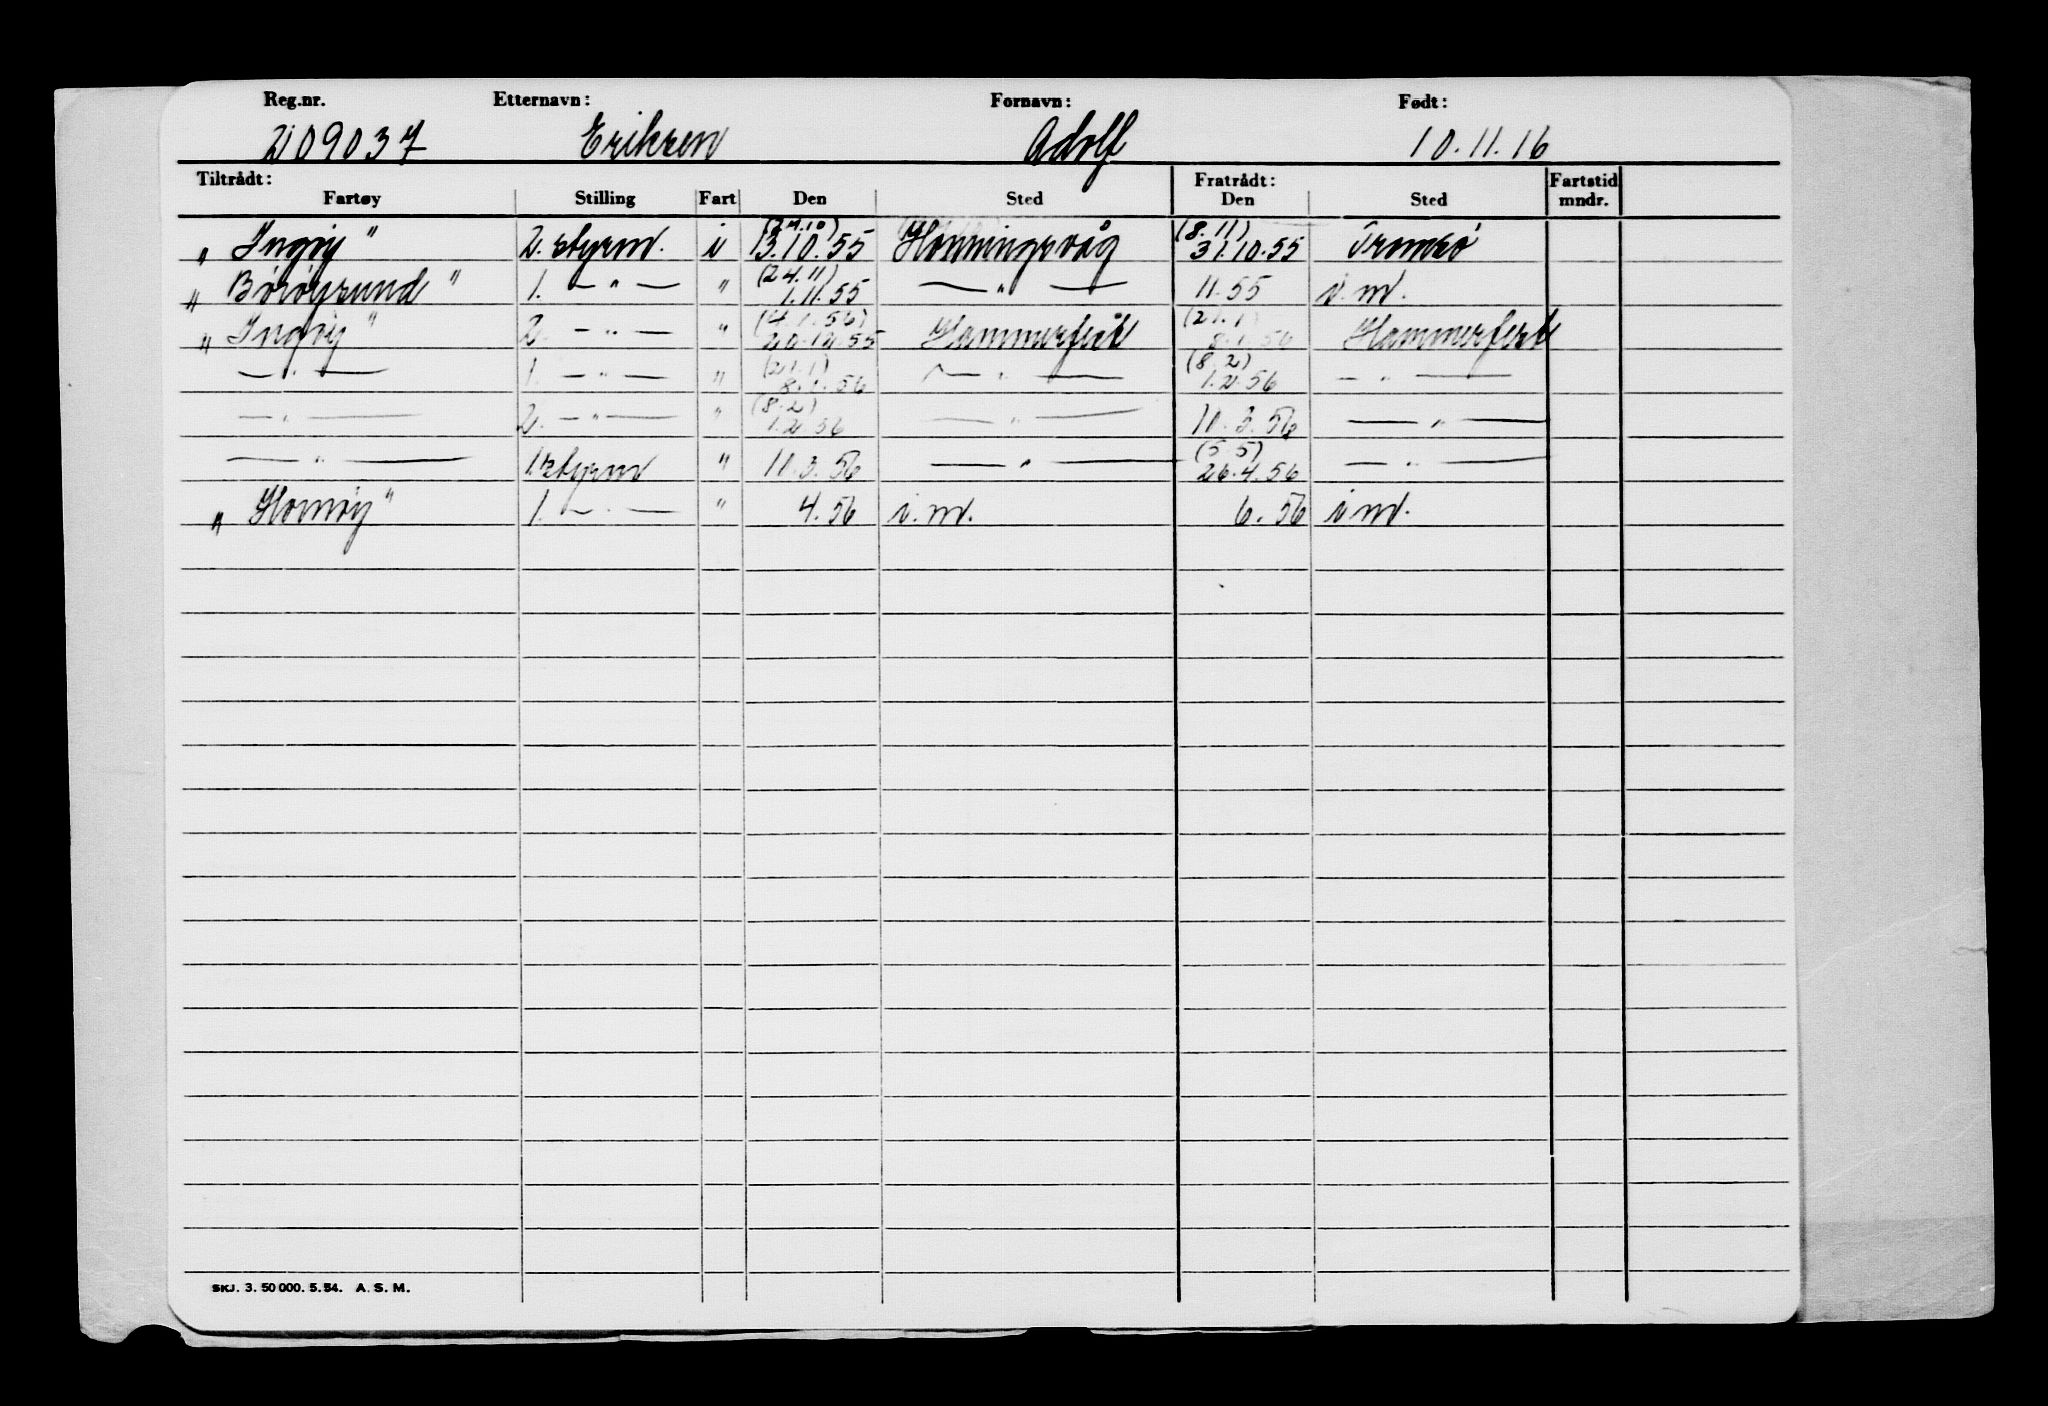 Reg.nr. Etternavn: Fornavn: Født:
209037 Eriksen Adolf 10.11.16
Tiltrådt: Fratrådt: Fartstid
Fartøy Stilling Fart Den Sted Den Sted mndr.
(24.10) (8.11)
„Ingøy" 2. styrm. i 13.10.55 Honningsvåg 31.10.55 Tromsø
(24.11)
„Børøysund" 1. —"— " 1.11.55 —"— 11.55 i.m.
(4.1.56) (21.1)
„Ingøy" 2. —"— " 20.12.55 Hammerfest 8.1.56 Hammerfest
(21.1) (8.2)
—"— 1. —"— " 8.1.56 —"— 1.2.56 —"—
(8.2)
—"— 2. —"— " 1.2.56 —"— 10.3.56 —"—
(5.5)
—"— 1. styrm " 10.3.56 —"— 26.4.56 —"—
„Hornøy" 1. —"— " 4.56 i.m. 6.56 i m.
SKJ. 3. 50 000. 5. 54. A. S. M.